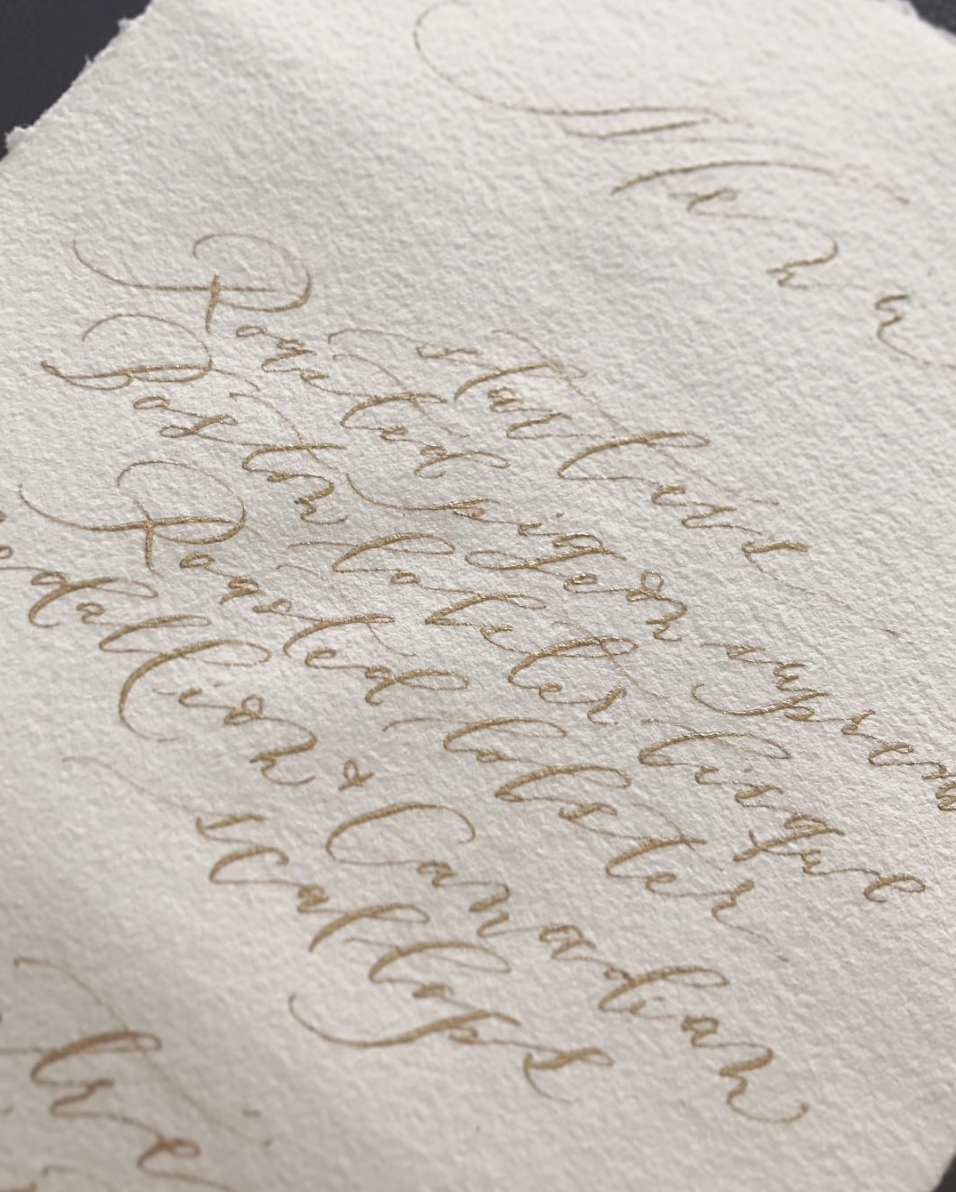 Menu
starters
Roasted pigeon supreme
Boston lobster bisque
Roasted lobster
medallion & Canadian
scallops